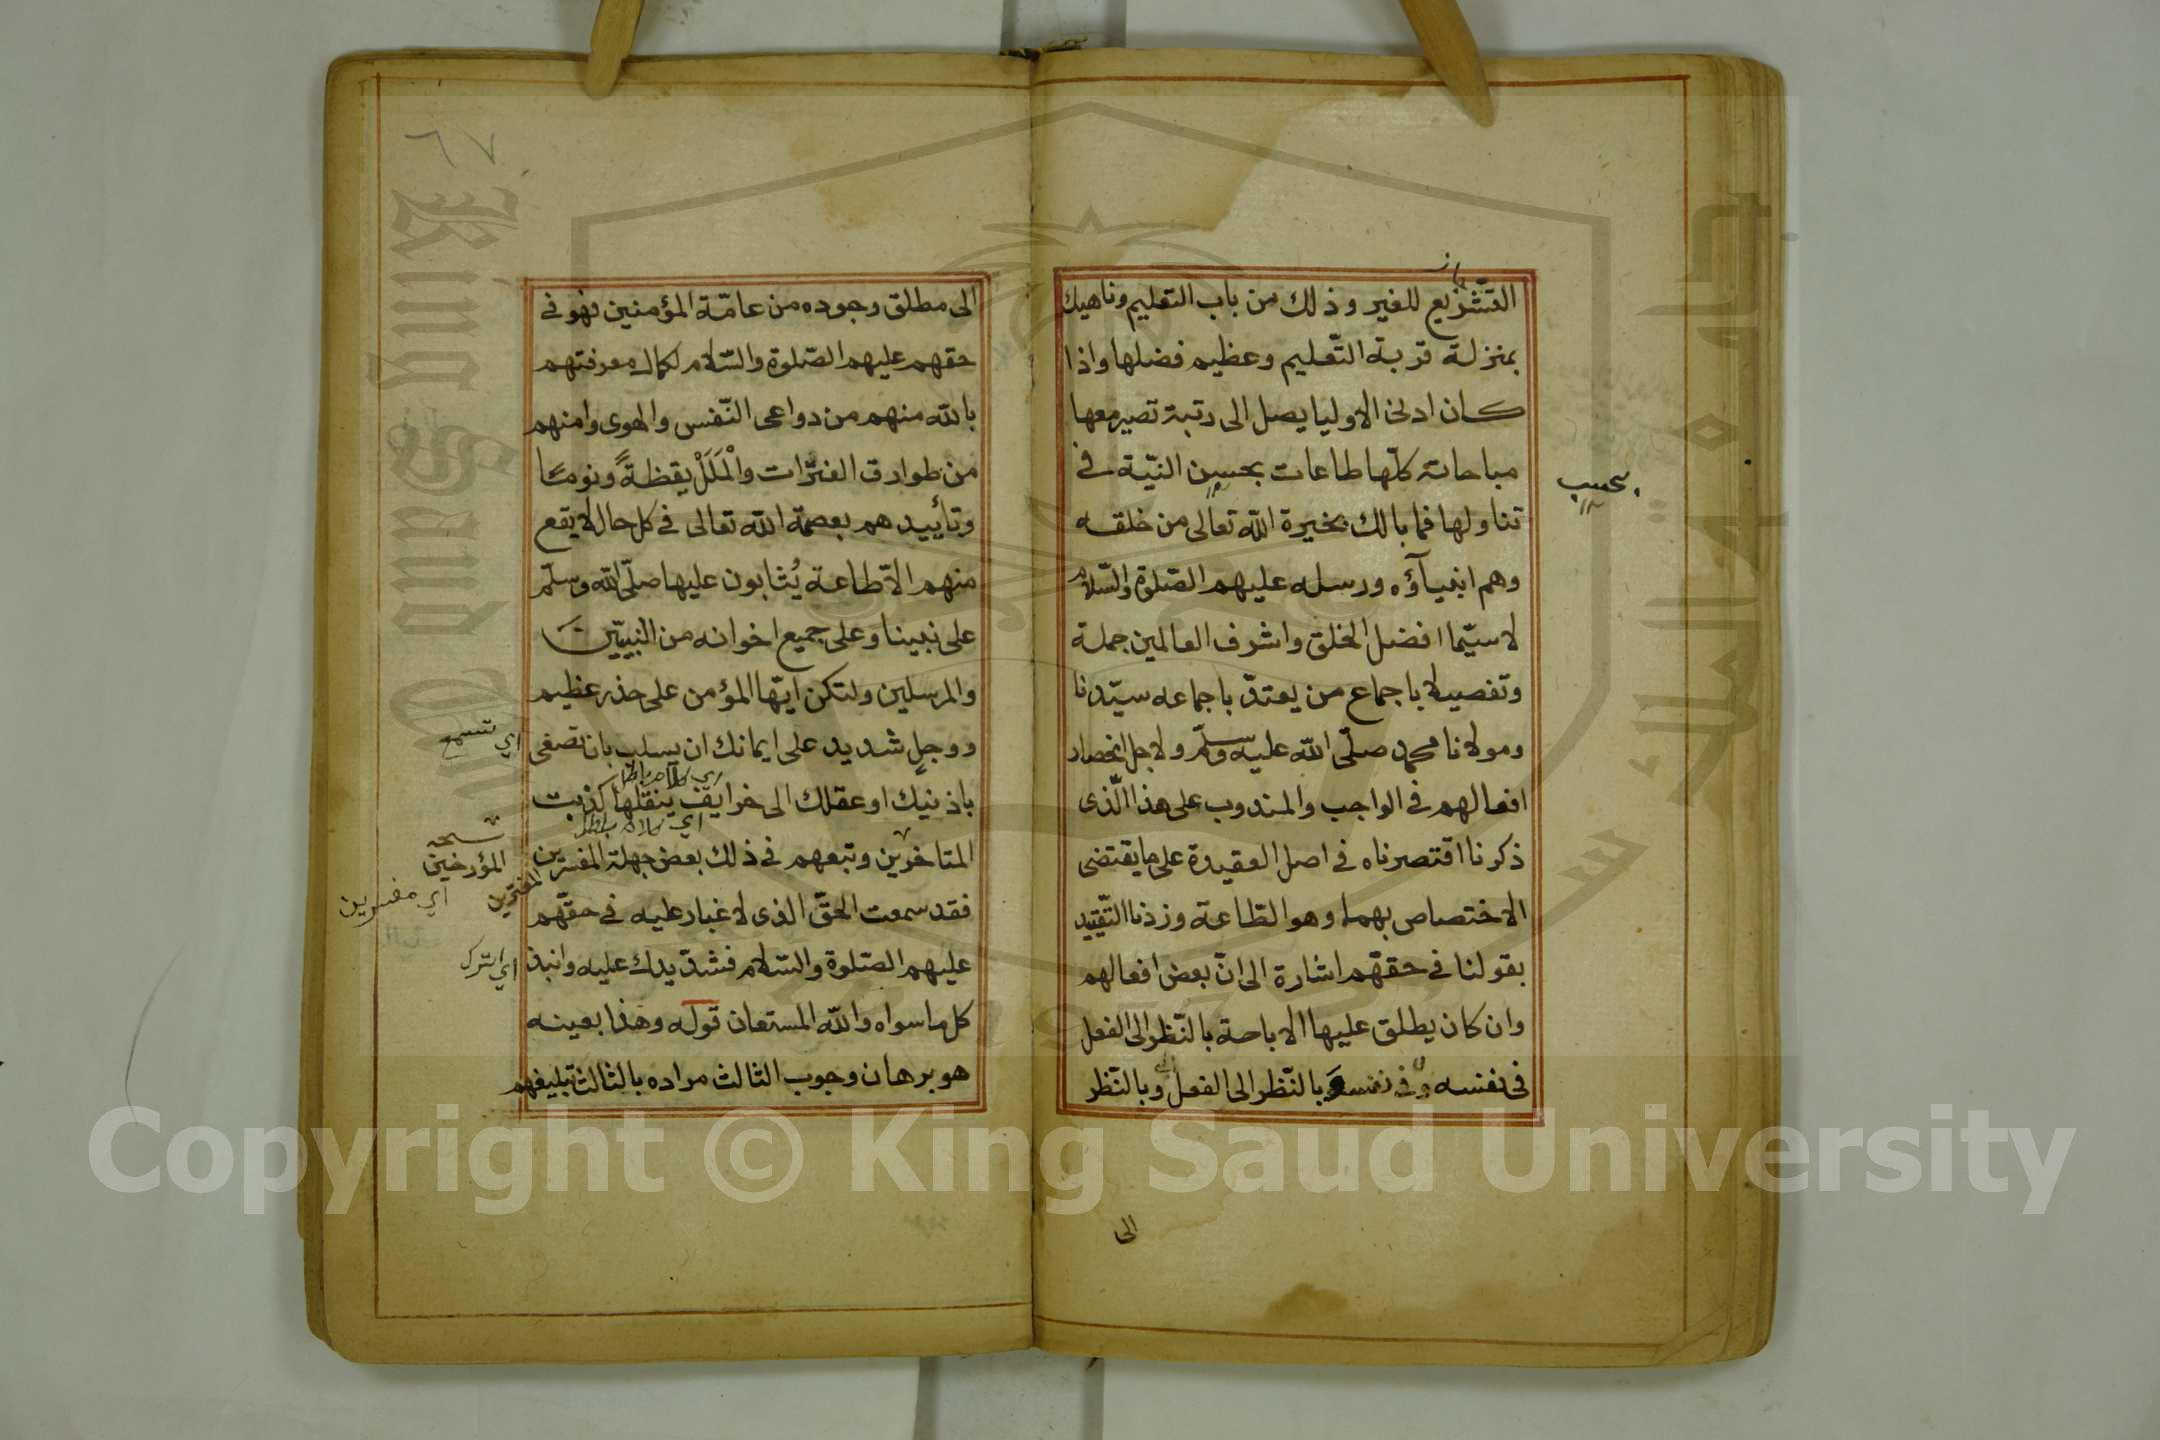 التشريع للغير وذلك من باب التعليم وناهيك
بمنزلة قربة التّعليم وعظيم فضلها واذا
كان ادنى الاوليا يصل الى رتبة تصير معها
مباحاته كلّها طاعات بحسن النيّة في
بحسب
تناولها فما بالك بخيرة الله تعالى من خلقه
وهم انبيآؤه ورسله عليهم الصّلوة والسّلام
لا سيّما افضل الخلق واشرف العالمين جملة
وتفصيلا باجماع من يعتدّ باجماعه سيّدنا
ومولانا محمد صلّى الله عليه وسلم ولاجل انحصار
افعالهم في الواجب والمندوب على هذا الّذى
ذكرنا اقتصرناه في اصل العقيدة على ما يقتضى
الاختصاص بهما وهو الطّاعة وزدنا التّقييد
بقولنا في حقهّم اشارة الى انّ بعض افعالهم
وان كان يطلق عليها الاباحة بالنّظر الى الفعل
فى نفسه وفى نفسه بالنّظر الى الفعل وبالنّظر
الى
٦٧
الى مطلق وجوده من عامّة المؤمنين فهو في
حقهم عليهم الصّلوة والسّلام لكمال معرفتهم
بالله منهم من دواعى النّفس والهوى وامنهم
من طوارق الفترات والْمَلَلْ يقظةً ونوما
وتأييدهم بعصمة الله تعالى في كل حال لا يقع
منهم الاّ طاعة يُثابون عليها صلّى الله وسلّم
على نبينا وعلى جميع اخوانه من النبيّين
والمرسلين ولتكن ايّها المؤمن على حذر عظيم
ووجلٍ شديد على ايمانك ان يسلب بان تصغى
اي تسمع
باذنيك او عقلك الى خرايف ينقلها كذبت
اي كلام باطل
المتاخرين وتبعهم في ذلك بعض جهلة المفسرين
نسخه
المؤرخين
اي مفسرين
فقد سمعت الحقّ الذى لا غبار عليه في حقهّم
عليهم الصّلوة والسّلام فشدّ يدك عليه وانبذ
اي اترك
كل ما سواه والله المستعان قوله وهذا بعينه
هو برهان وجوب الثالث مراده بالثالث تبليغهم
Copyright © King Saud University